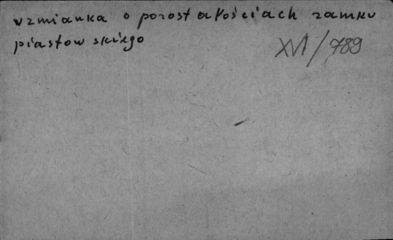 vzmianka o pozostałościach zamku
piastowskiego
XVI/789